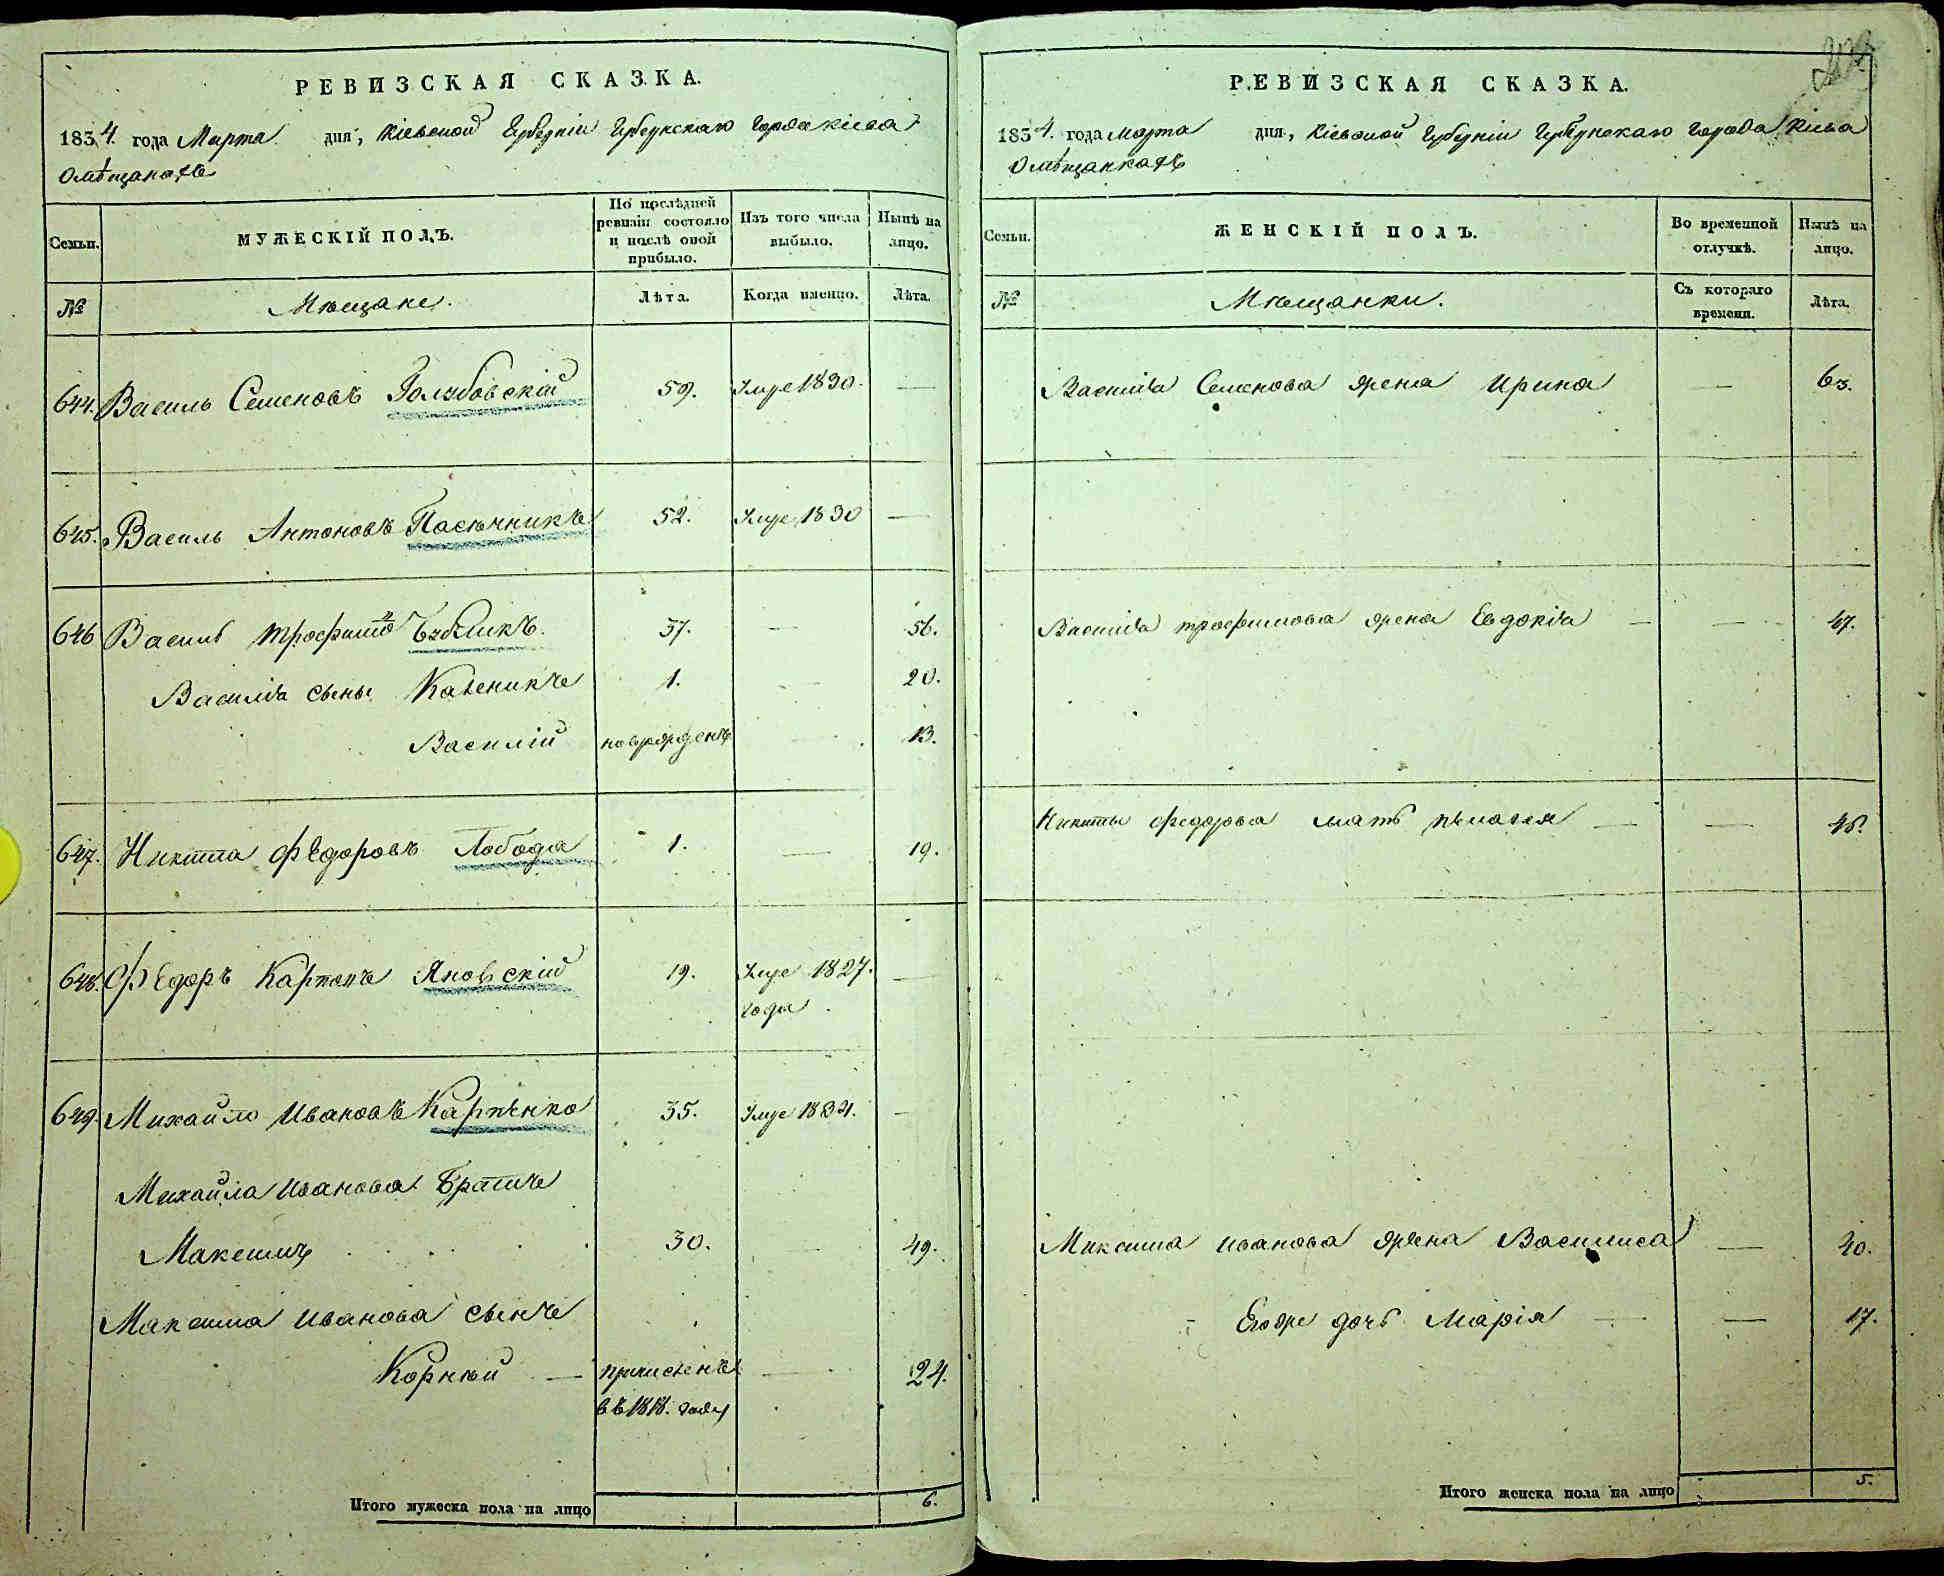 РЕВИЗСКАЯ СКАЗКА.
1834. года Марта дня, Кіевской Губерніи Губернскаго Города Кіева
О мѣщанахъ
Семьи.
МУЖЕСКІЙ ПОЛЪ.
По послѣдней ревизіи состояло и послѣ оной прибыло.
Изъ того числа выбыло.
Нынѣ на лицо.
№
Мѣщане.
Лѣта.
Когда именно.
Лѣта.
644. Василь Семеновъ Голубовскій 59. Умре 1830. —
645. Василь Антоновъ Пасѣчникъ 52. Умре 1830 —
646 Василь Трофимов Бубликъ. 37. — 56.
Василія сыны Каленикъ 1. — 20.
Василій новорожденъ — 13.
647. Никита Федоровъ Лобода 1. — 19.
648. Федоръ Карповъ Яновскій 19. Умре 1827. —
года
649. Михайло Ивановъ Карпенко 35. Умре 1831. —
Михайла Иванова Братъ
Максимъ 30. — 49.
Максима Иванова сынъ
Корнѣй — причисленъ — 24.
въ 1818. году
Итого мужеска пола на лицо 6.
РЕВИЗСКАЯ СКАЗКА.
1834. года Марта дня, Кіевской Губерніи Губернскаго Города Кіева
О мѣщанкахъ
Семьи.
ЖЕНСКІЙ ПОЛЪ.
Во временной отлучкѣ.
Нынѣ на лицо.
№
Мѣщанки.
Съ котораго времени.
Лѣта.
Василія Семенова жена Ирина — 63.
Василія Трофимова жена Евдокія — — 47.
Никиты Федорова мать Пелагея — — 48.
Максима Иванова жена Василиса — 40.
Егоже дочь Марія — — 17.
Итого женска пола на лицо 5.